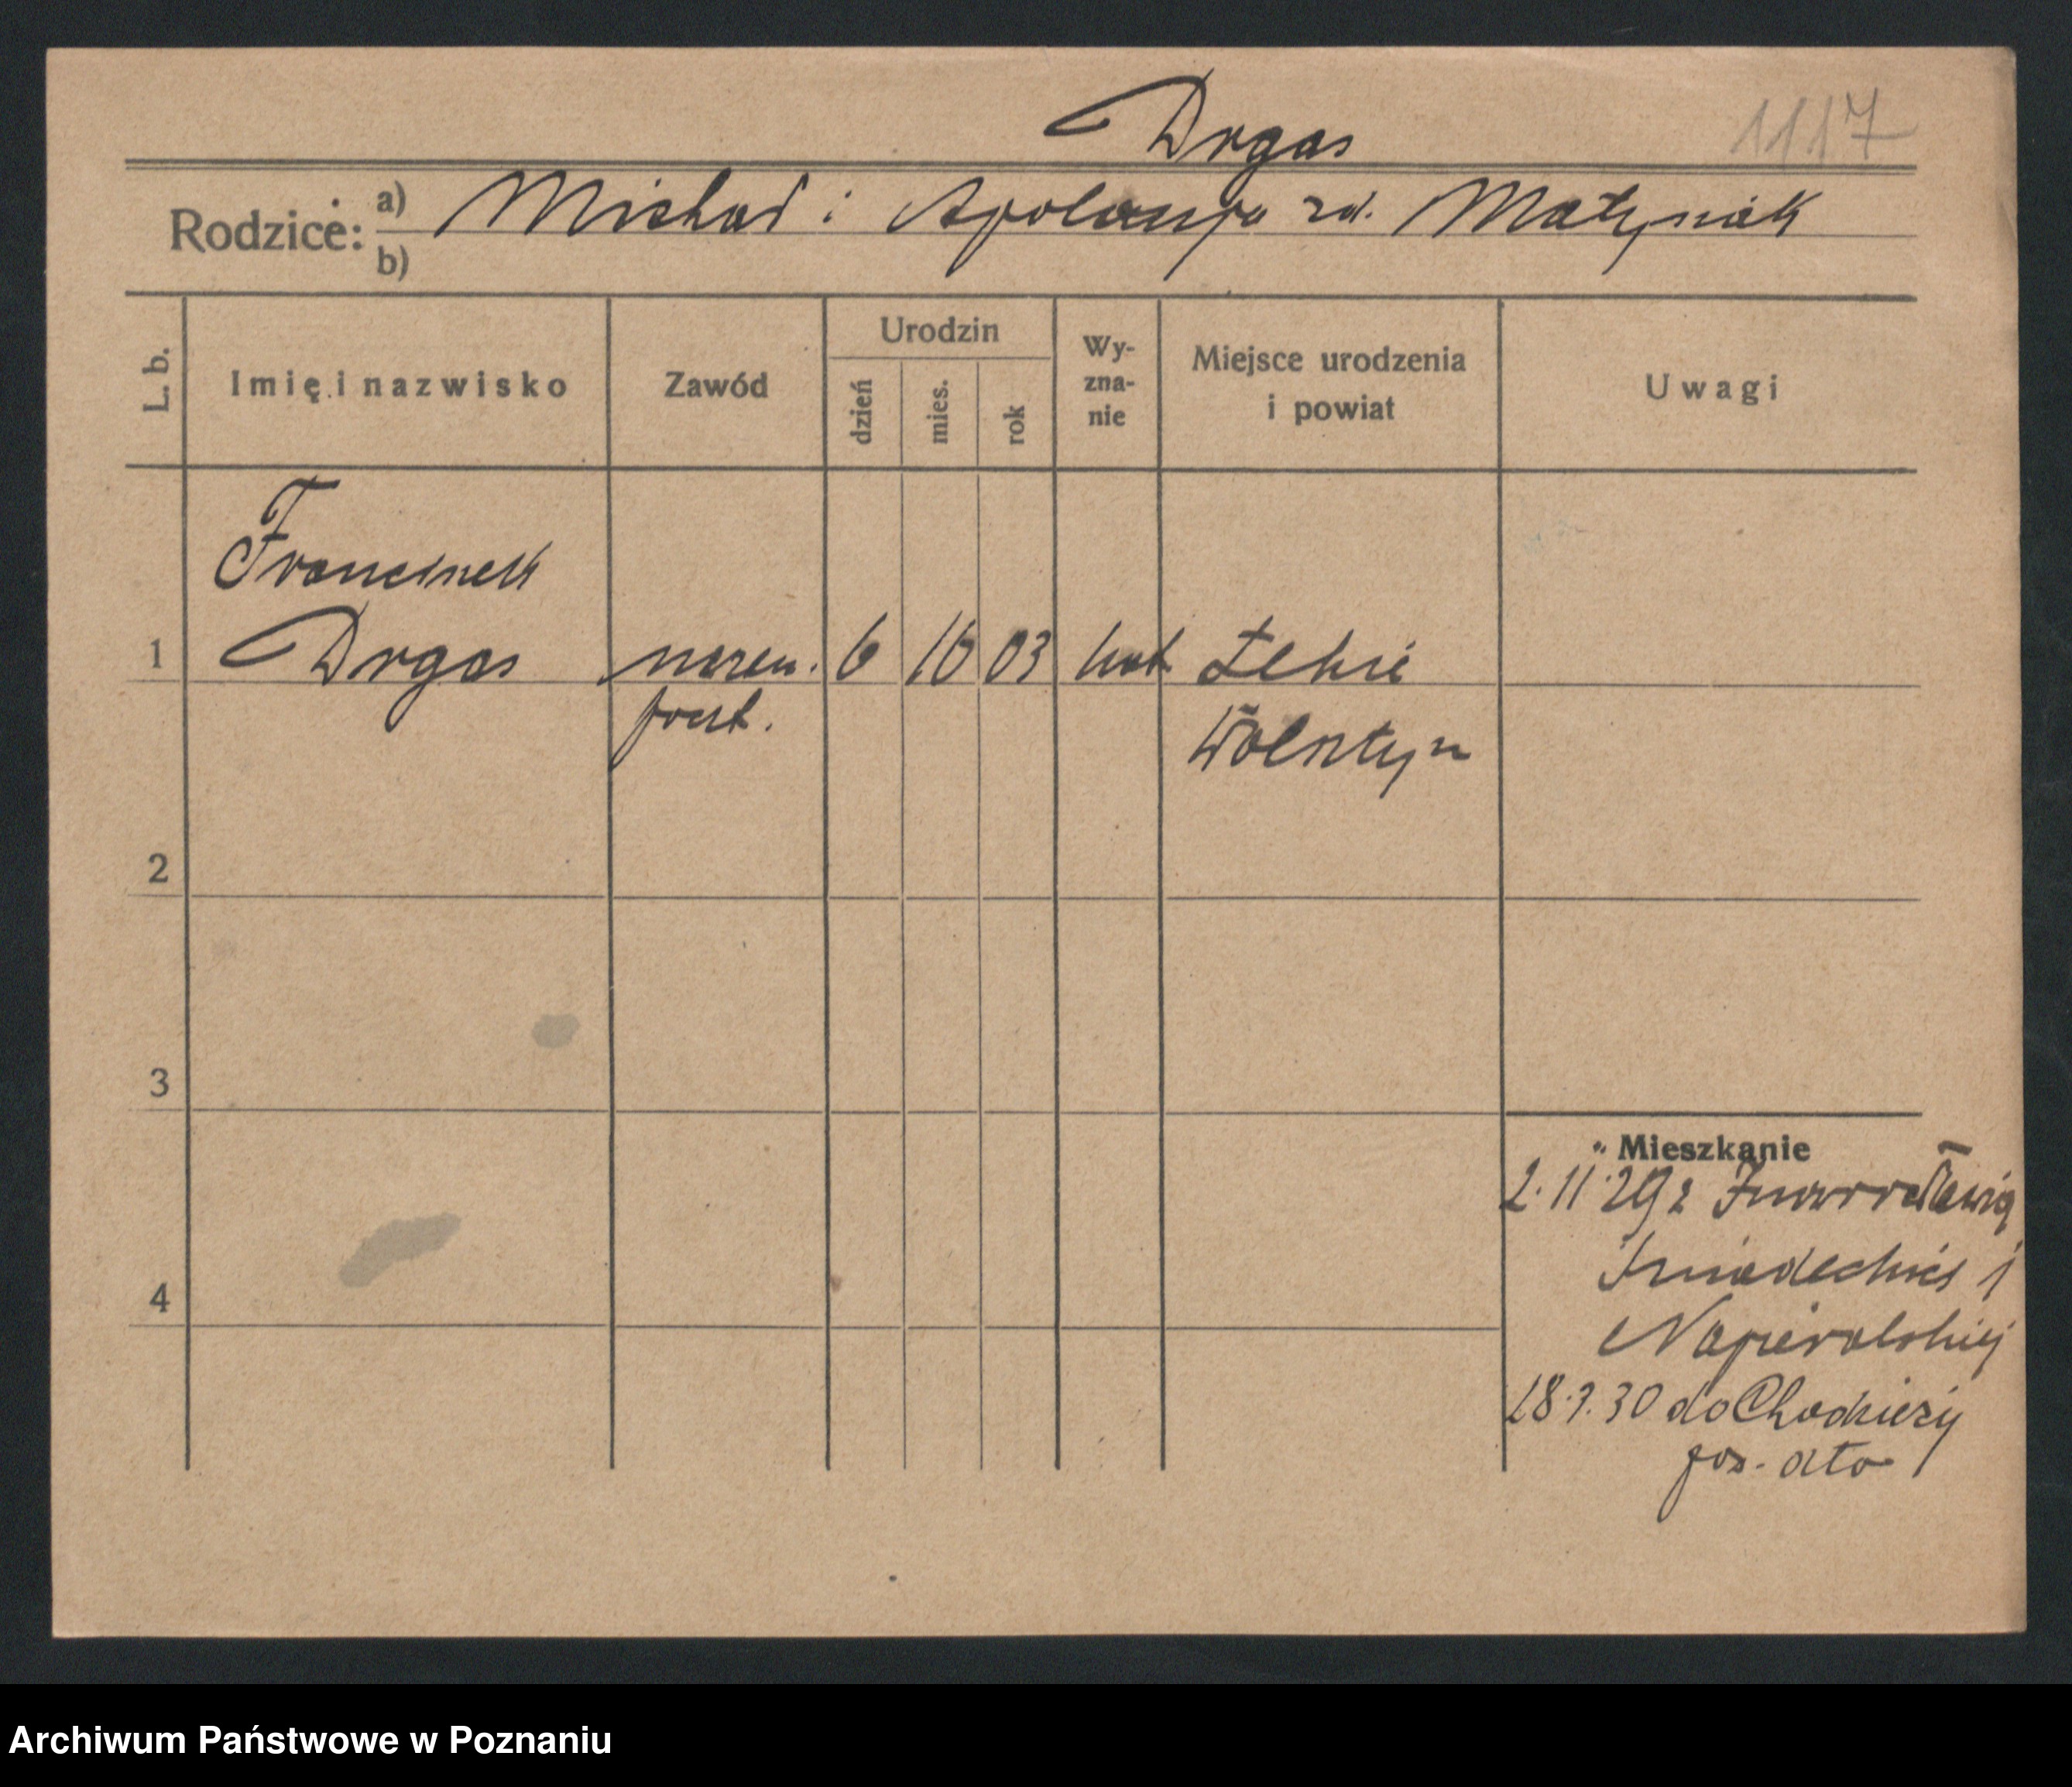 Drgas
1117
Rodzice: a) Michał i Apolonja zd. Matysiak
b)
L. b.
Imię i nazwisko
Zawód
Urodzin
dzień
mies.
rok
Wy-
zna-
nie
Miejsce urodzenia
i powiat
Uwagi
Franciszek
1 Drgas 6 10 03 kat. Łekie
Wolsztyn
2
3
4
Mieszkanie
2.11.29 z Inowrocławia
Śniadeckich 1
Napieralskiej
18.3.30 do Chodzieży
Archiwum Państwowe w Poznaniu